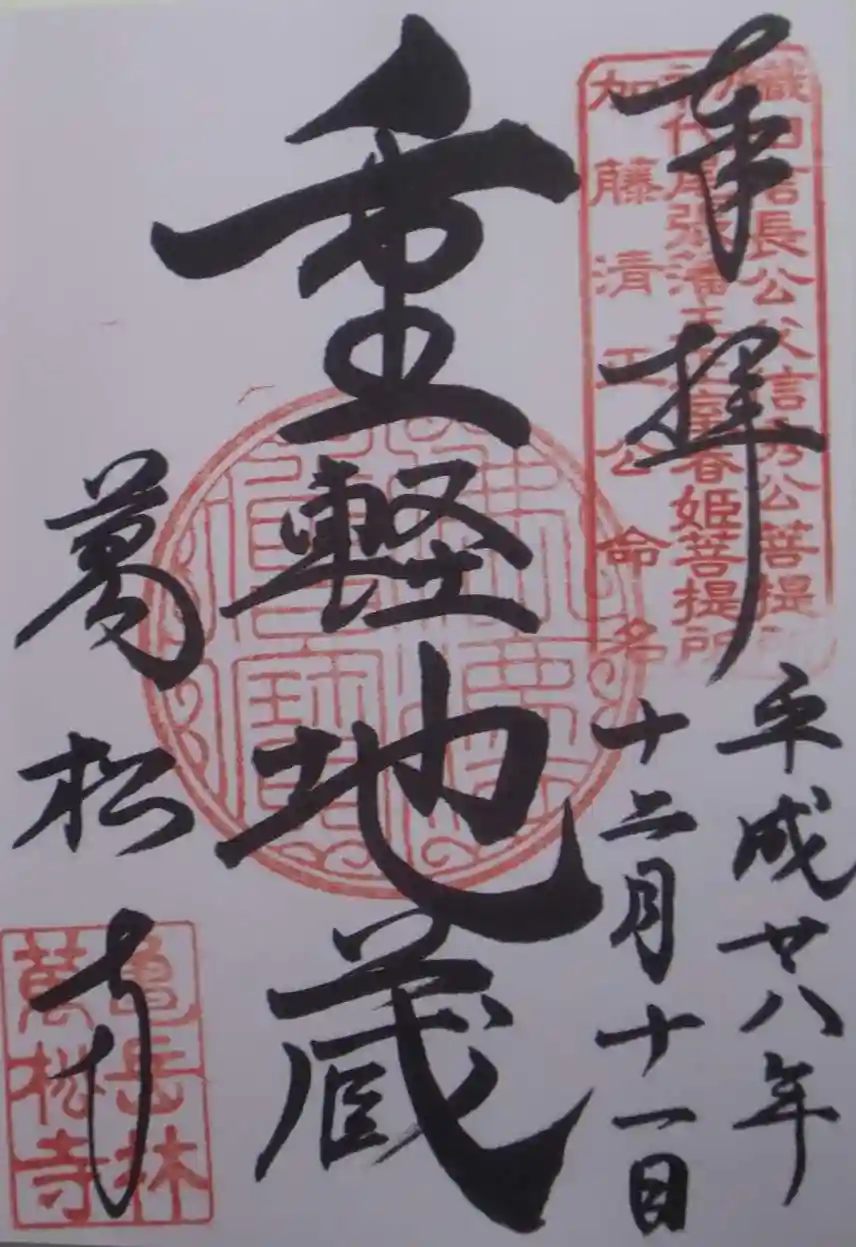 奉拝
平成廿八年
十二月十一日
織田信長公父信秀公菩提所
初代尾張藩主正室春姫菩提所
加藤清正公命名
重軽地蔵
萬松寺
亀岳林
萬松寺